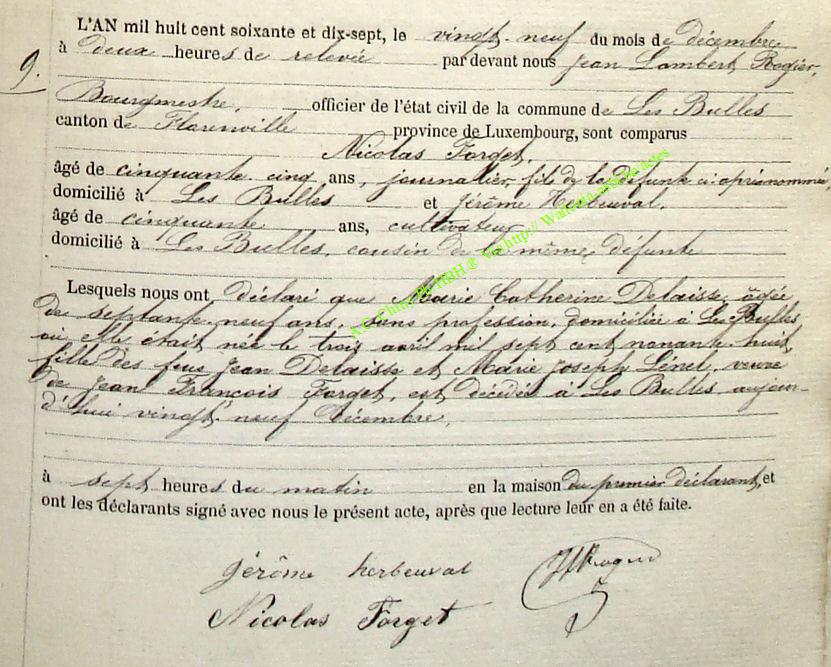 L'AN mil huit cent soixante et dix-sept, le vingt-neuf du mois de décembre
à deux heures de relevée par devant nous Jean Lambert Rogier,
9.
Bourgmestre, officier de l'état civil de la commune de Les Bulles
canton de Florenville province de Luxembourg, sont comparus
Nicolas Forget,
âgé de cinquante cinq ans, journalier, fils de la défunte ci-après nommée
domicilié à Les Bulles et Jérôme Herbeuval,
âgé de cinquante ans, cultivateur
domicilié à Les Bulles, cousin de la même défunte
Lesquels nous ont déclaré que Marie Catherine Delaisse, âgée
de septante neuf ans, sans profession, domiciliée à Les Bulles
où elle était née le trois avril mil sept cent nonante huit,
fille des feus Jean Delaisse et Marie Joseph Lénel, veuve
de Jean François Forget, est décédée à Les Bulles aujour-
d'hui vingt-neuf décembre,
à sept heures du matin en la maison du premier déclarant, et
ont les déclarants signé avec nous le présent acte, après que lecture leur en a été faite.
Jérôme herbeuval
Nicolas Forget